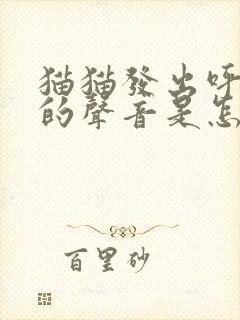 猫猫發出呼
的聲音是怎
百里砂